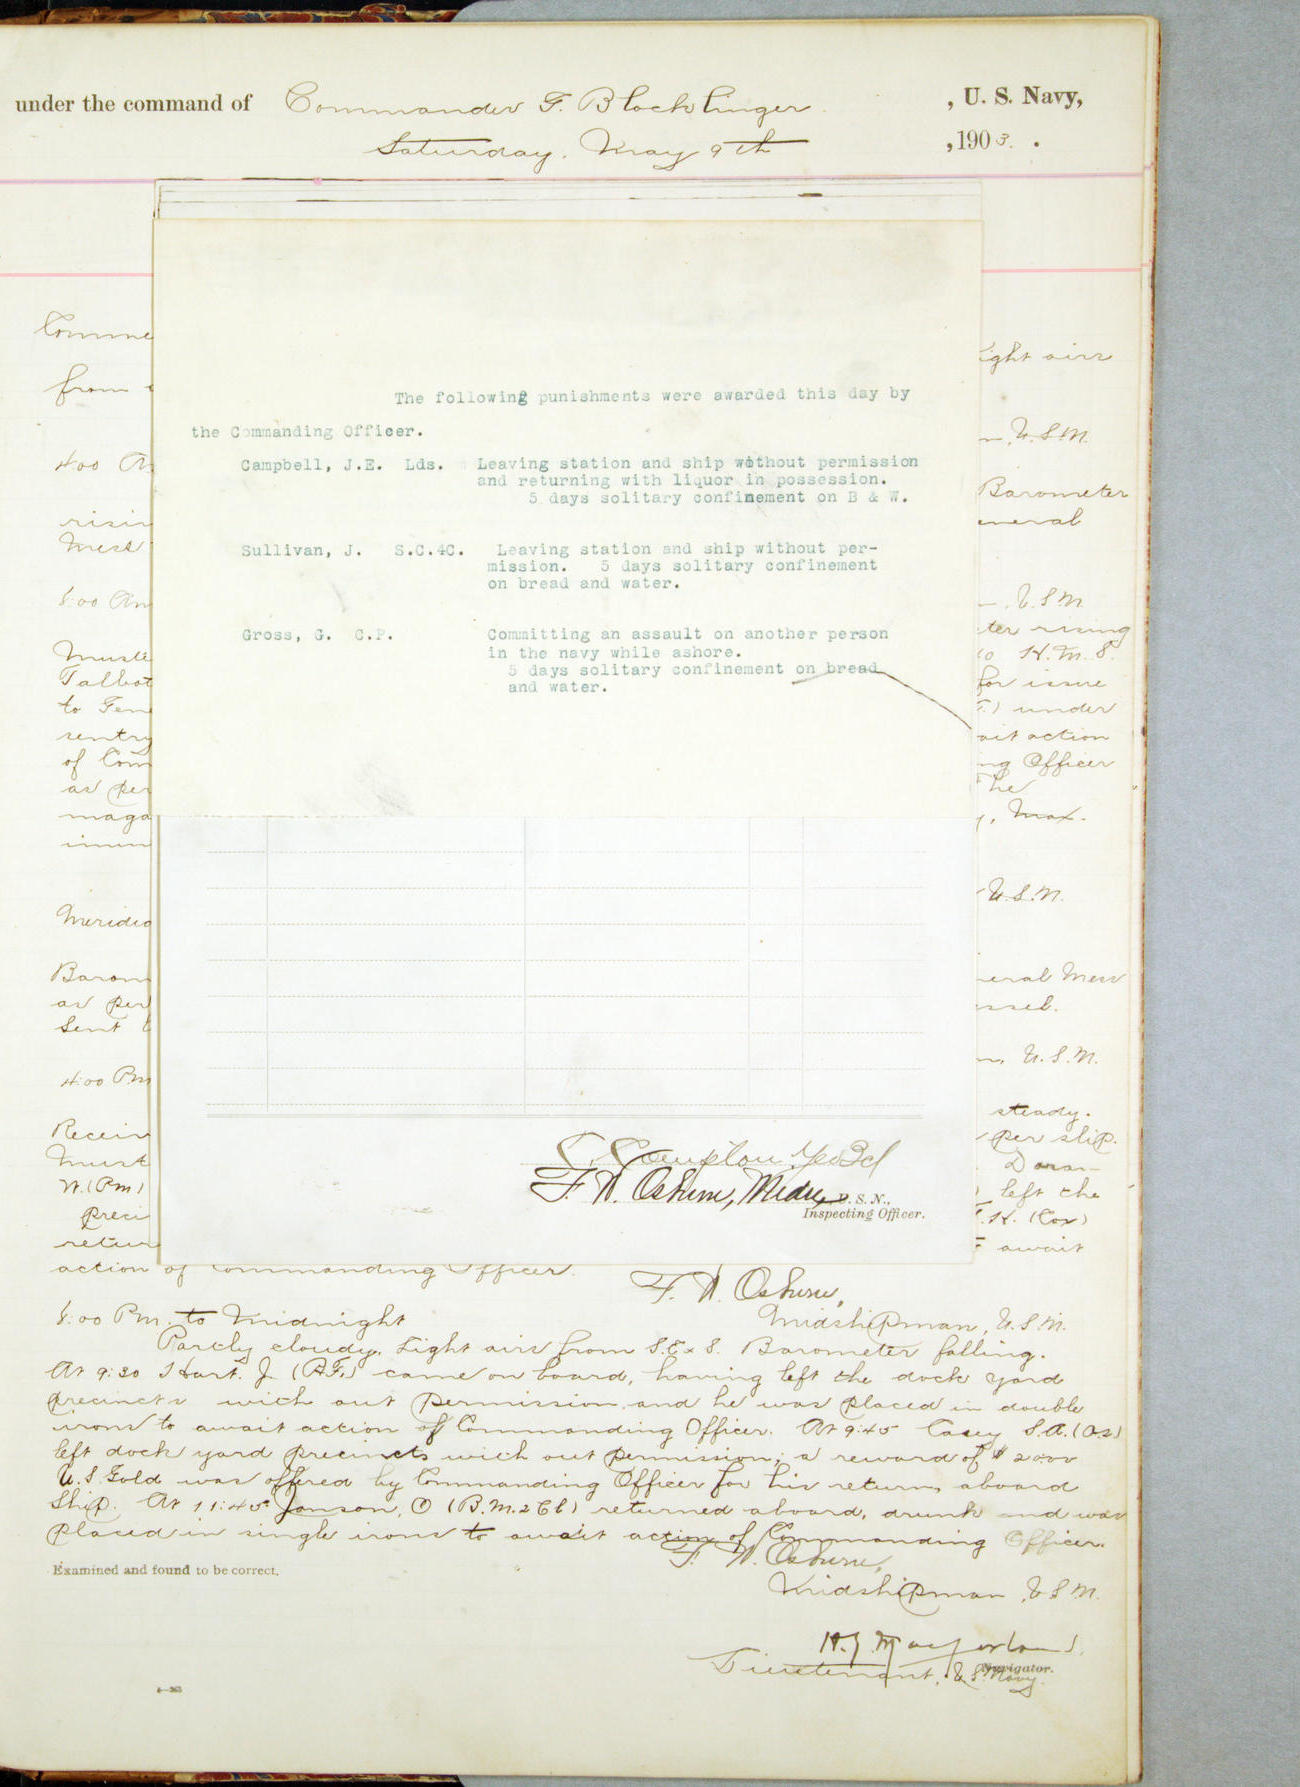 under the command of Commander F. Blocklinger, U. S. Navy,
Saturday. May 9th, 1903.
Comme
ight airs
from
U.S.N.
4:00
Barometer
risin
eneral
Mess
8:00 Am
U.S.N.
ter rising
Muste
to H.M.S.
Talbot
for issue
to Fem
under
sentry
ait action
of Com
ng Officer
as per
he
maga
Max.
imum
U.S.N.
Meridia
Barom
neral Mess
as per
essel.
Sent
4:00 Pm
U.S.N.
steady.
Receiv
per slip.
Must
W. (Pm)
left the
preci
(Cox)
retur
await
The following punishments were awarded this day by
the Commanding Officer.
Campbell, J.E. Lds. Leaving station and ship without permission
and returning with liquor in possession.
5 days solitary confinement on B & W.
Sullivan, J. S.C.4C. Leaving station and ship without per-
mission. 5 days solitary confinement
on bread and water.
Gross, G. C.P. Committing an assault on another person
in the navy while ashore.
5 days solitary confinement on bread
and water.
F. W. Osburn, U. S. N.,
Inspecting Officer.
action of Commanding Officer.
F. W. Osburn,
8:00 Pm. to Midnight Midshipman, U.S.N.
Partly cloudy. Light airs from S.E x S. Barometer falling.
At 9:30 Hart. J. came on board, having left the dock yard
precincts with out permission and he was placed in double
irons to await action of Commanding Officer. At 9:45 Casey S.A. (O.S)
left dock yard precincts with out permission, a reward of $
U.S. Gold was offered by Commanding Officer for his return aboard
Ship. At 11:45 Janson, O (B.M.2Cl) returned aboard, drunk and was
placed in single irons to await action of Commanding Officer.
F. W. Osburn,
Examined and found to be correct.
Midshipman, U.S.N.
Lieutenant, U.S. Navy.
Navigator.